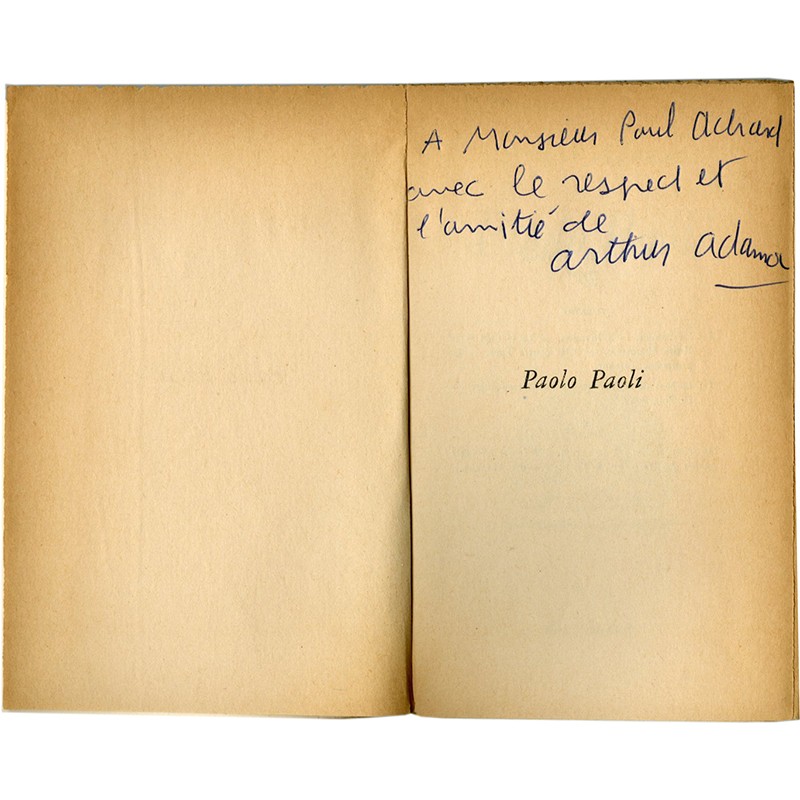 A Monsieur Paul Achard
avec le respect et
l'amitié de
arthur adamov
Paolo Paoli